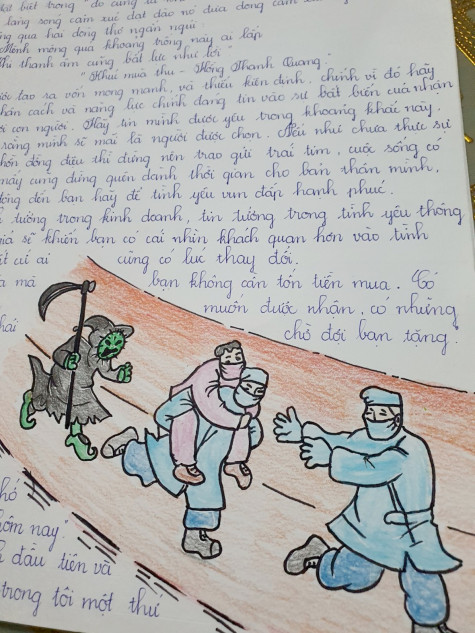 biết trong "đo cung
lang song cảm xúc dạt dào nó đưa dòng cảm
ng qua hai dòng thơ ngắn ngủi.
Mênh mông quá khoảng trống này ai lấp
Khi thanh âm cũng bất lực như lời"
"Khúc mùa thu - Hồng Thanh Quang."
tạo ra vốn mong manh, và thiếu kiên định, chính vì đó hãy
nhân cách và năng lực chính đáng tin vào sự bất biến của nhân
con người. Hãy tin mình được yêu trong khoảng khắc này.
rằng mình sẽ mãi là người được chọn. Nếu như chưa thực sự
hồn đồng điệu thì đừng nên trao gửi trái tim, cuộc sống có
mấy cũng đừng quên dành thời gian cho bản thân mình,
động đến bạn hãy để tình yêu vun đắp hạnh phúc.
tưởng trong kinh doanh, tin tưởng trong tình yêu thông
giá sĩ khiến bạn có cái nhìn khách quan hơn vào tình
cứ ai cũng có lúc thay đổi.
mà bạn không cần tốn tiền mua. Có
muốn được nhận, có những
chờ đợi bạn tặng.
hó
hôm nay".
đầu tiên và
trong tôi một thứ